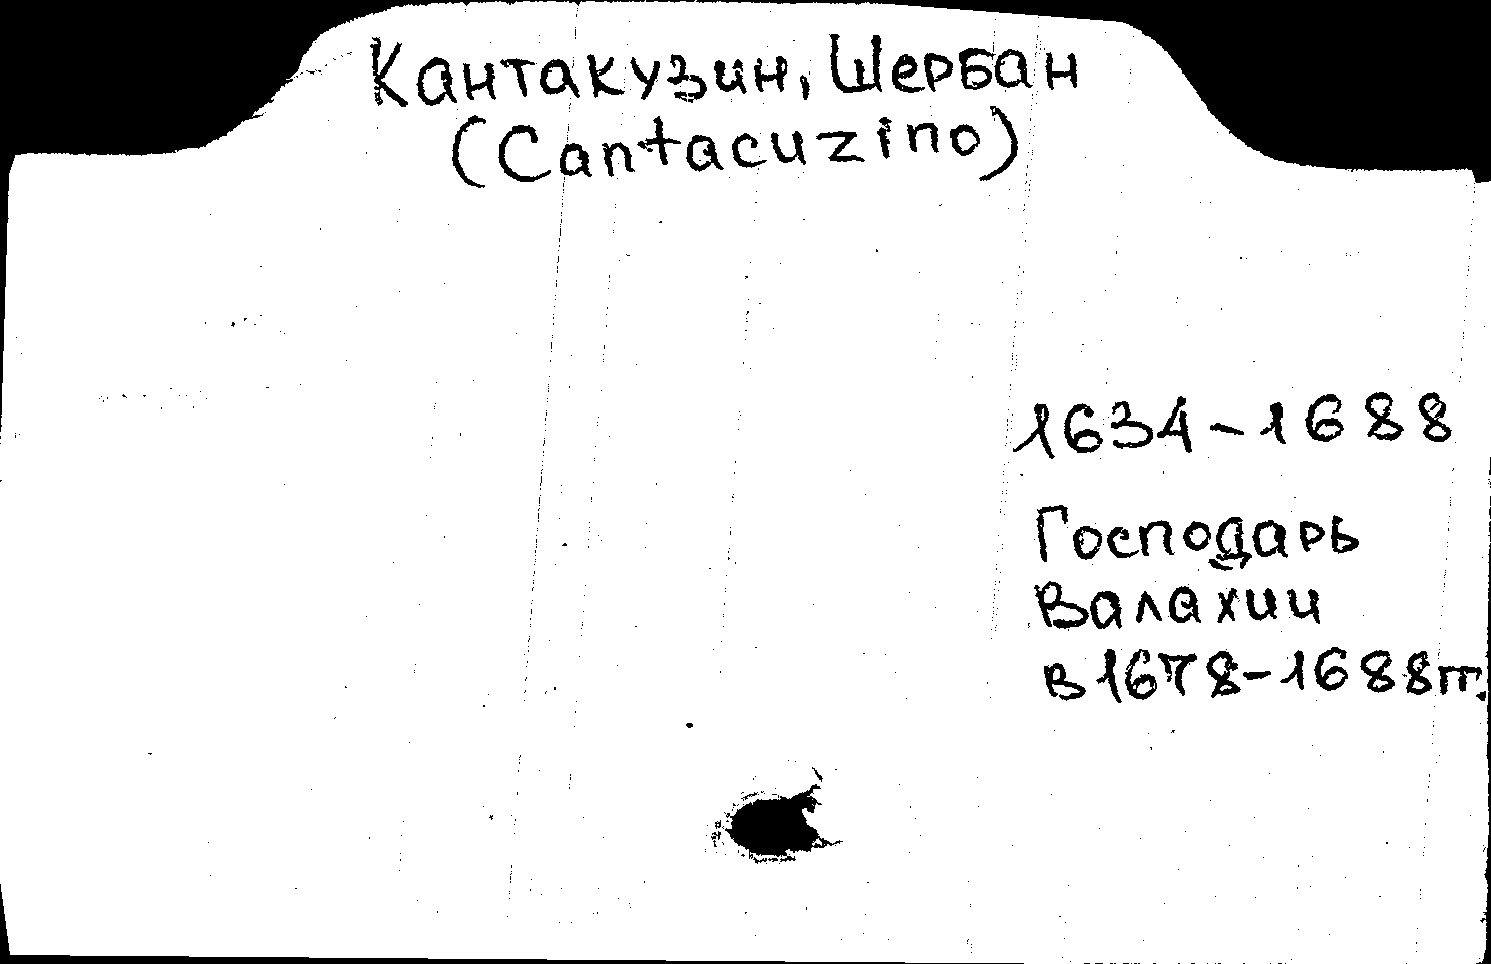 Кантакузин, Шербан
(Cantacuzino)
1634-1688
Господарь
Валахии
в 1678-1688 гг.